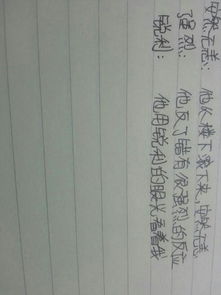 安然无恙：他从楼下滚下来，安然无恙
强烈：他反了错有很强烈的反应
锐利：他用锐利的眼光看着我